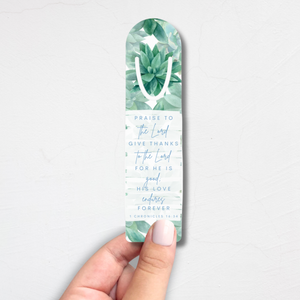 PRAISE TO
the Lord
GIVE THANKS
to the Lord
FOR HE IS
good
HIS LOVE
endures
FOREVER
1 CHRONICLES 16:34